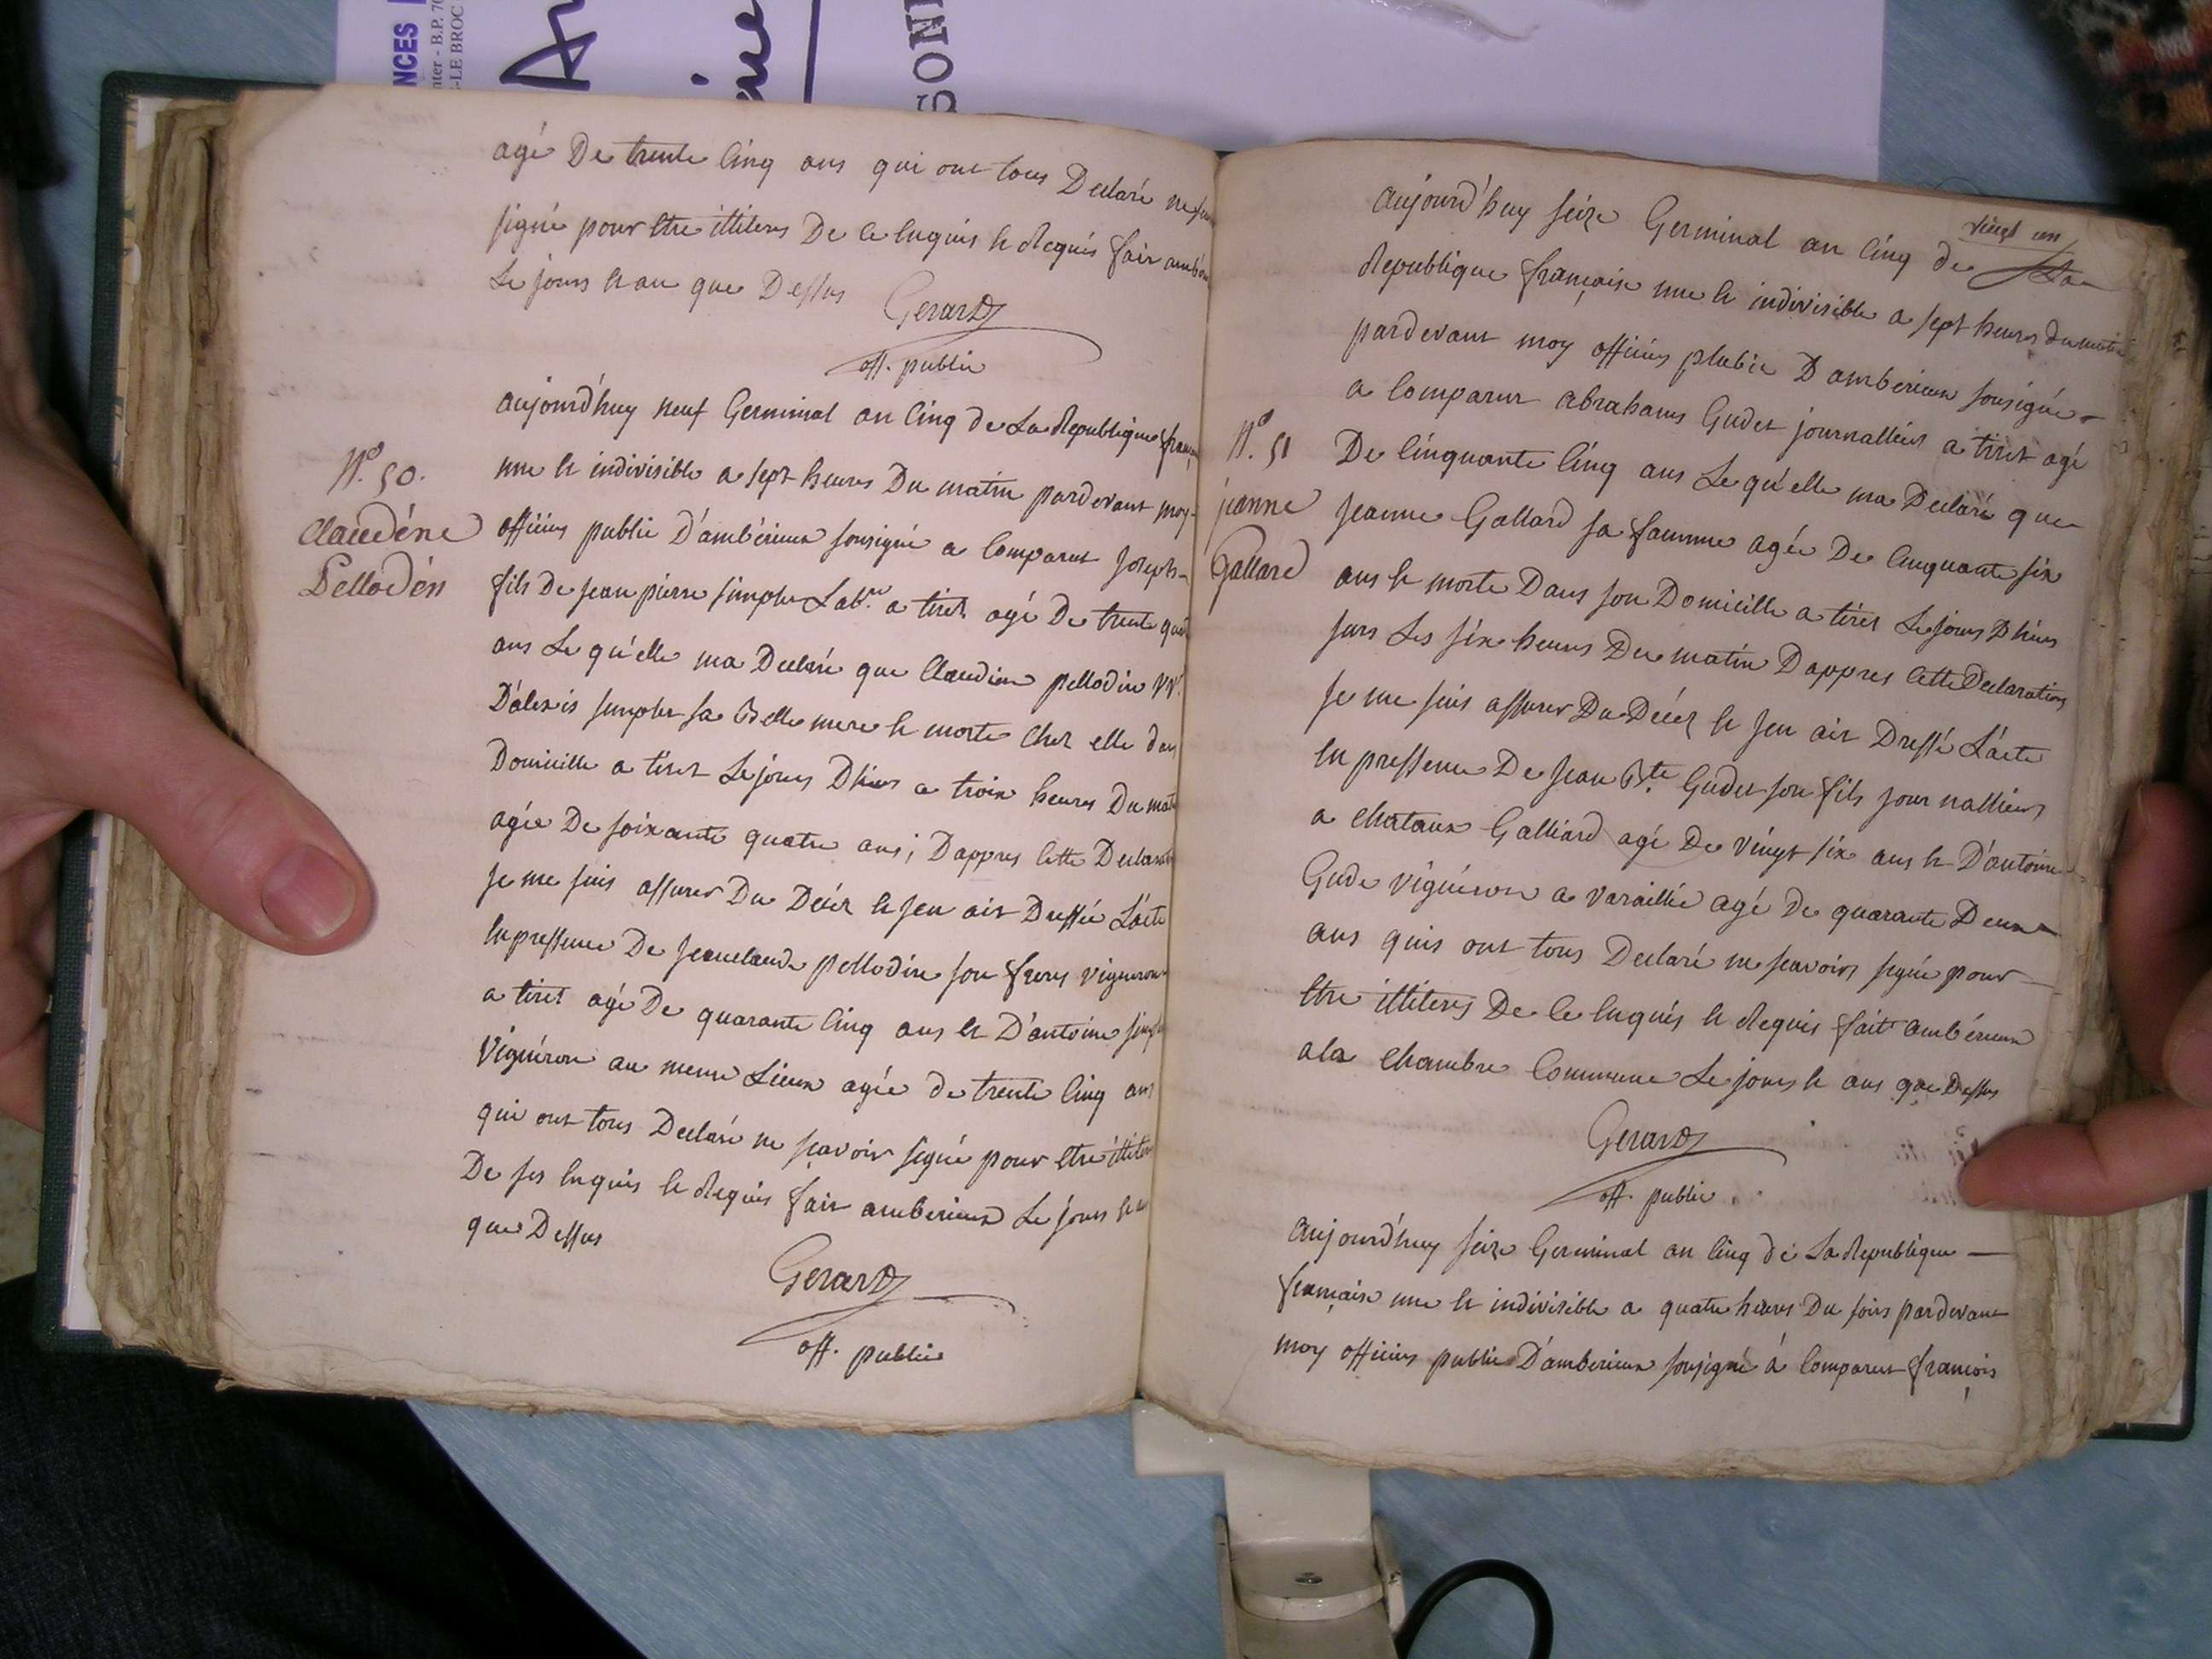 NCES
nter - B.P. 70
-LE BROC
SON
agé De trente Cinq ans qui ont tous Declaré ne
signé pour Etre illiteres De ce Enquis Et Requis fait
Le jours Et an que Dessus Gerard
off. public
aujourd'huy neuf Germinal an Cinq de La Republique
une Et indivisible a sept heures Du matin pardevant moy
N.o 50.
Claudéne
Pellodén
officier public D'ambérieux sousigné a Comparut Joseph
fils De jean pierre simple Lab.r a tiret agé De trente
ans Le qu'elle ma Declaré que Claudine pellodin vv.
D'alexis simple sa Belle mere Et morte Chez elle
Domicille a tiret Le jours Dhier a trois heures Du
agée De soixante quatre ans ; Dappres Cette
Je me suis assurer Du Décez Et Jen ait Dressée L'acte
En pressence De jeanclaude pellodin son freres vigneron
a tiret agé De quarante Cinq ans Et D'antoine
vignéron au meme Lieux agée de trente Cinq ans
qui ont tous Declaré ne scavoir signé pour Etre
De ses Enquis Et Requis fait ambérieux Le jours
que Dessus
Gerard
off. public
vingt un
aujourd'huy seize Germinal an Cinq de La
Republique française une Et indivisible a sept heures du
pardevant moy officier plubic D'amberieux sousigné
a Comparut abrahams Gudet journallier a tiret agé
N.o 51
jeanne
Gallard
De Cinquante Cinq ans Le qu'elle ma Declaré que
jeanne Gallard sa famme agée De Cinquante six
ans Et morte Dans son Domicille a tiret Le jours Dhier
surs Les six heures Du matin Dappres Cette Declaration
Je me suis assurer Du Décez Et Jen ait Dressé L'acte
En pressence De jean B.te Gudet son fils journallier
a Chataux Galliard agé De vingt six ans Et D'antoine
Gude vignéron a varaillié agé De quarante Deux
ans quis ont tous Declaré ne scavoirs signé pour
Etre illiteres De ce Enquis Et Requis fait ambérieux
a la Chambre Commune Le jours Et ans que Dessus
Gerard
off. public
aujourd'huy seize Germinal an Cinq de La Republique
française une Et indivisible a quatre heures Du soirs pardevant
moy officier public D'amberieux sousigné à Comparut françois